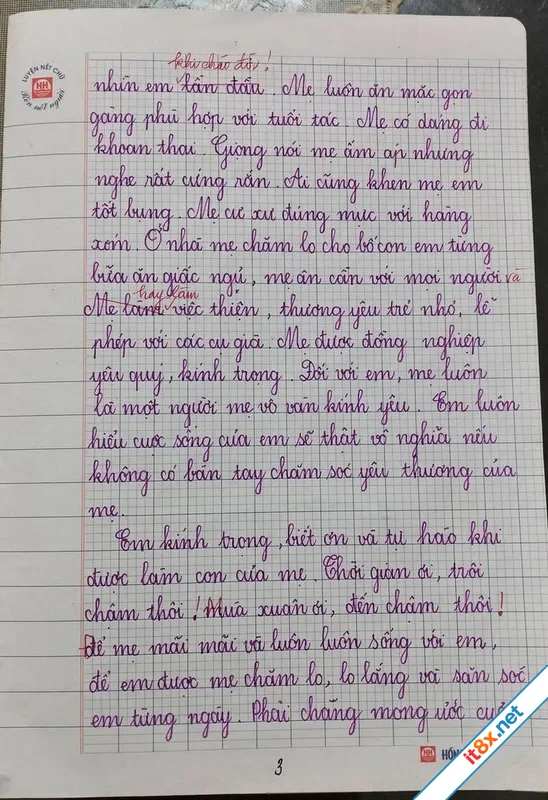 LUYỆN NÉT CHỮ
HH
Rèn nết người
khi chào đời!
nhìn em lần đầu. Mẹ luôn ăn mặc gọn
gàng phù hợp với tuổi tác. Mẹ có dáng đi
khoan thai. Giọng nói mẹ ấm áp nhưng
nghe rất cứng rắn. Ai cũng khen mẹ em
tốt bụng. Mẹ cư xử đúng mực với hàng
xóm. Ở nhà mẹ chăm lo cho bố con em từng
bữa ăn giấc ngủ, mẹ ân cần với mọi người và
hay làm
Mẹ làm việc thiện, thương yêu trẻ nhỏ, lễ
phép với các cụ già. Mẹ được đồng nghiệp
yêu quý, kính trọng. Đối với em, mẹ luôn
là một người mẹ vô vàn kính yêu. Em luôn
hiểu cuộc sống của em sẽ thật vô nghĩa nếu
không có bàn tay chăm sóc yêu thương của
mẹ.
Em kính trọng, biết ơn và tự hào khi
được làm con của mẹ. Thời gian ơi, trôi
chậm thôi! Mùa xuân ơi, đến chậm thôi!
Để mẹ mãi mãi và luôn luôn sống với em,
để em được mẹ chăm lo, lo lắng và săn sóc
em từng ngày. Phải chăng mong ước
HH HỒN
3
it8x.net